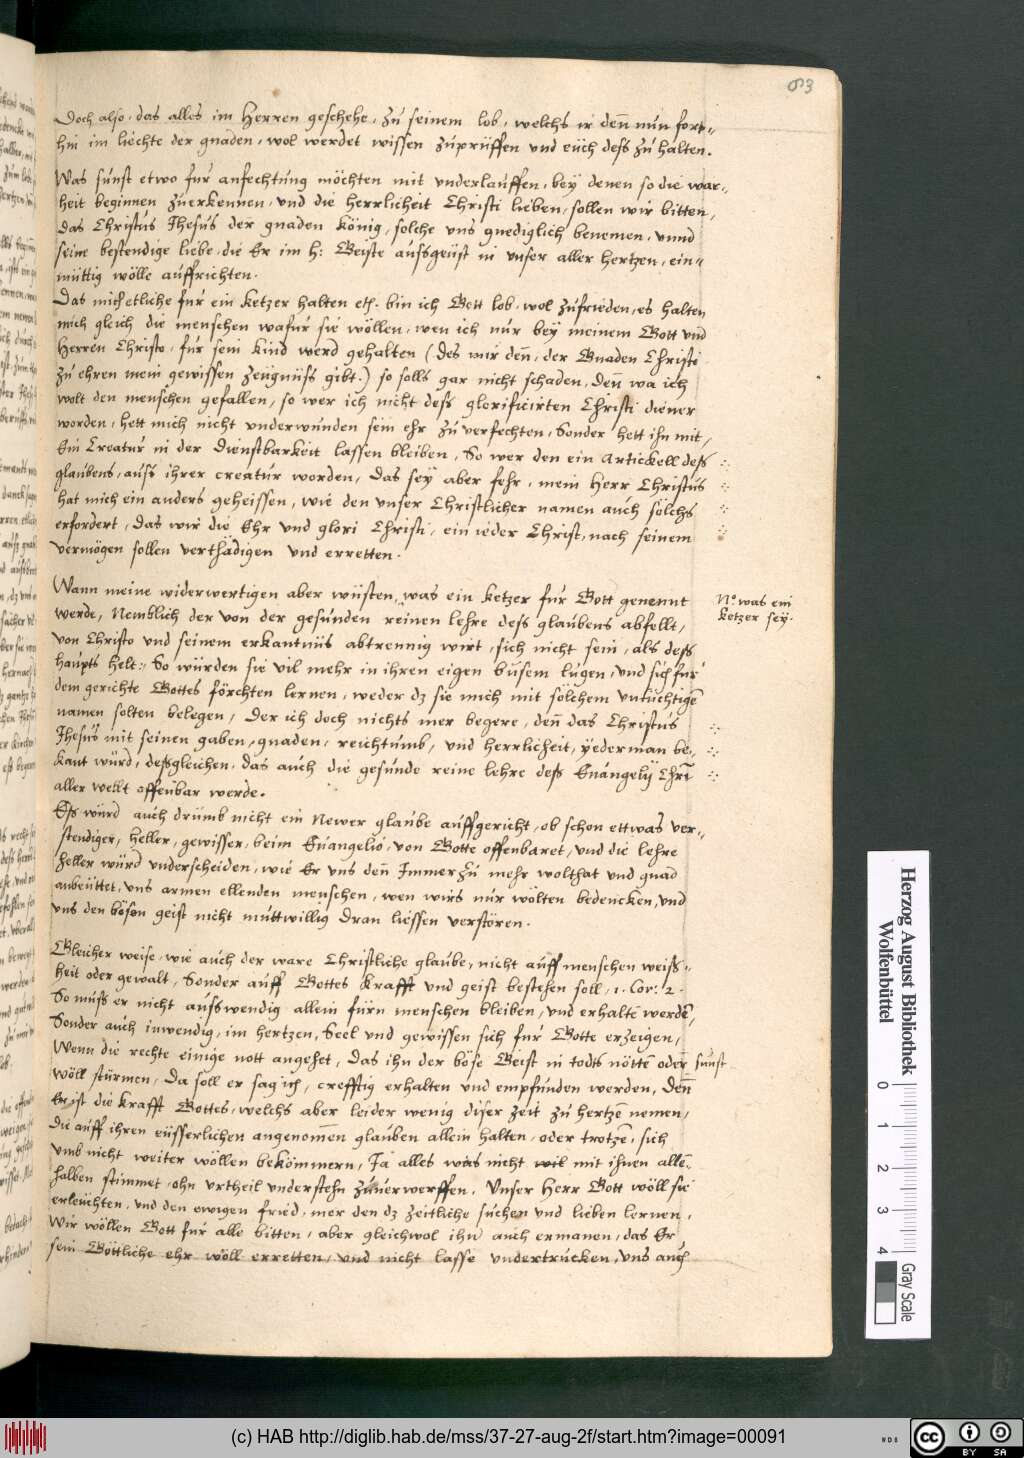 83
Doch also, das alles im Herren geschehe, zu seinem lob, welchs ir deñ nun fort=
hin im liechte der gnaden, wol werdet wissen zuprüffen und eüch dess zu halten.
Was sunst etwo für anfechtung möchten mit underlauffen, bey denen so die war=
heit beginnen zuerkennen, und die herrlicheit Christi lieben, sollen wir bitten,
das Christus Jhesus der gnaden könig, solche uns gnediglich benemen, unnd
seine bestendige liebe, die Er im h: Geiste aussgeüst in unser aller hertzen, ein=
müttig wölle auffrichten.
Das mich etliche für ein ketzer halten etc. bin ich Gott lob, wol zufrieden, es halten
mich gleich die menschen wafür sie wöllen, wen ich nur bey meinem Gott und
Herren Christo, für sein kind werd gehalten (des mir deñ, der Gnaden Christi
zu ehren mein gewissen zeügnüss gibt.) so solls gar nicht schaden, deñ wa ich
wolt den menschen gefallen, so wer ich nicht dess glorificirten Christi diener
worden, hett mich nicht underwunden sein ehr zu verfechten, Sonder hett ihn mit,
Ein Creatur in der dienstbarkeit lassen bleiben, So wer den ein Artickell dess
glaubens, auss ihrer creatur worden, das sey aber fehr, mein Herr Christus
hat mich ein anders geheissen, wie den unser Christlicher namen auch sölchs
erfordert, das wir die Ehr und glori Christi, ein ieder Christ, nach seinem
vermögen sollen verthädigen und erretten.
Wann meine widerwertigen aber wüsten, was ein ketzer für Gott genennt
werde, Nemblich der von der gesunden reinen lehre dess glaubens abfellt,
von Christo und seinem erkantnüs abtrennig wirt, sich nicht sein, als dess
haupts helt:, So würden sie vil mehr in ihren eigen busem lugen, und sich für
dem gerichte Gottes förchten lernen, weder dz sie mich mit sölchem untüchtigẽ
namen solten belegen, Der ich doch nichts mer begere, deñ das Christus
Jhesus mit seinen gaben, gnaden, reichtumb, und herrlicheit, yederman be,
kant würd, dessgleichen, das auch die gesunde reine lehre dess Euangelij Chri
aller wellt offenbar werde.
N.o was ein
ketzer sey.
Ess würd auch drumb nicht ein Newer glaube auffgericht, ob schon ettwas ver=
stendiger, heller, gewisser, beim Euangelio, von Gotte offenbaret, und die lehre
heller würd underscheiden, wie Er uns deñ Immerzu mehr wolthat und gnad
anbeüttet, uns armen ellenden menschen, wen wirs nur wölten bedencken, und
uns den bösen geist nicht muttwillig dran liessen verstören.
Gleicher weise, wie auch der ware Christliche glaube, nicht auff menschen weiss=
heit oder gewalt, Sonder auff Gottes krafft und geist bestehen soll, 1. Cor: 2.
So muss er nicht ausswendig allein fürn menschen bleiben, und erhaltẽ werdẽ,
Sonder auch inwendig, im hertzen, Seel und gewissen sich für Gotte erzeigen,
Wenn die rechte einige nott angehet, das ihn der böse Geist in todts nöttẽ oder sunst
wöll stürmen, Da soll er sag ich, crefftig erhalten und empfunden werden, deñ
Er ist die krafft Gottes, welchs aber leider wenig diser zeit zu hertzẽ nemen,
die auff ihren eüsserlichen angenomẽn glauben allein halten, oder trotzẽ, sich
umb nicht weiter wöllen bekömmern, Ja alles was nicht wil mit ihnen allẽ=
halben stimmet, ohn urtheil understehn zuuerwerffen. Unser Herr Gott wöll sie
erleüchten, und den ewigen fried, mer den dz zeitliche suchen und lieben lernen,
Wir wöllen Gott für alle bitten, aber gleichwol ihn auch ermanen, das Er
sein Göttliche ehr wöll erretten, und nicht lasse undertrucken, uns auch
Herzog August Bibliothek
Wolfenbüttel
0 1 2 3 4
Gray Scale
(c) HAB http://diglib.hab.de/mss/37-27-aug-2f/start.htm?image=00091
WDB
cc BY SA